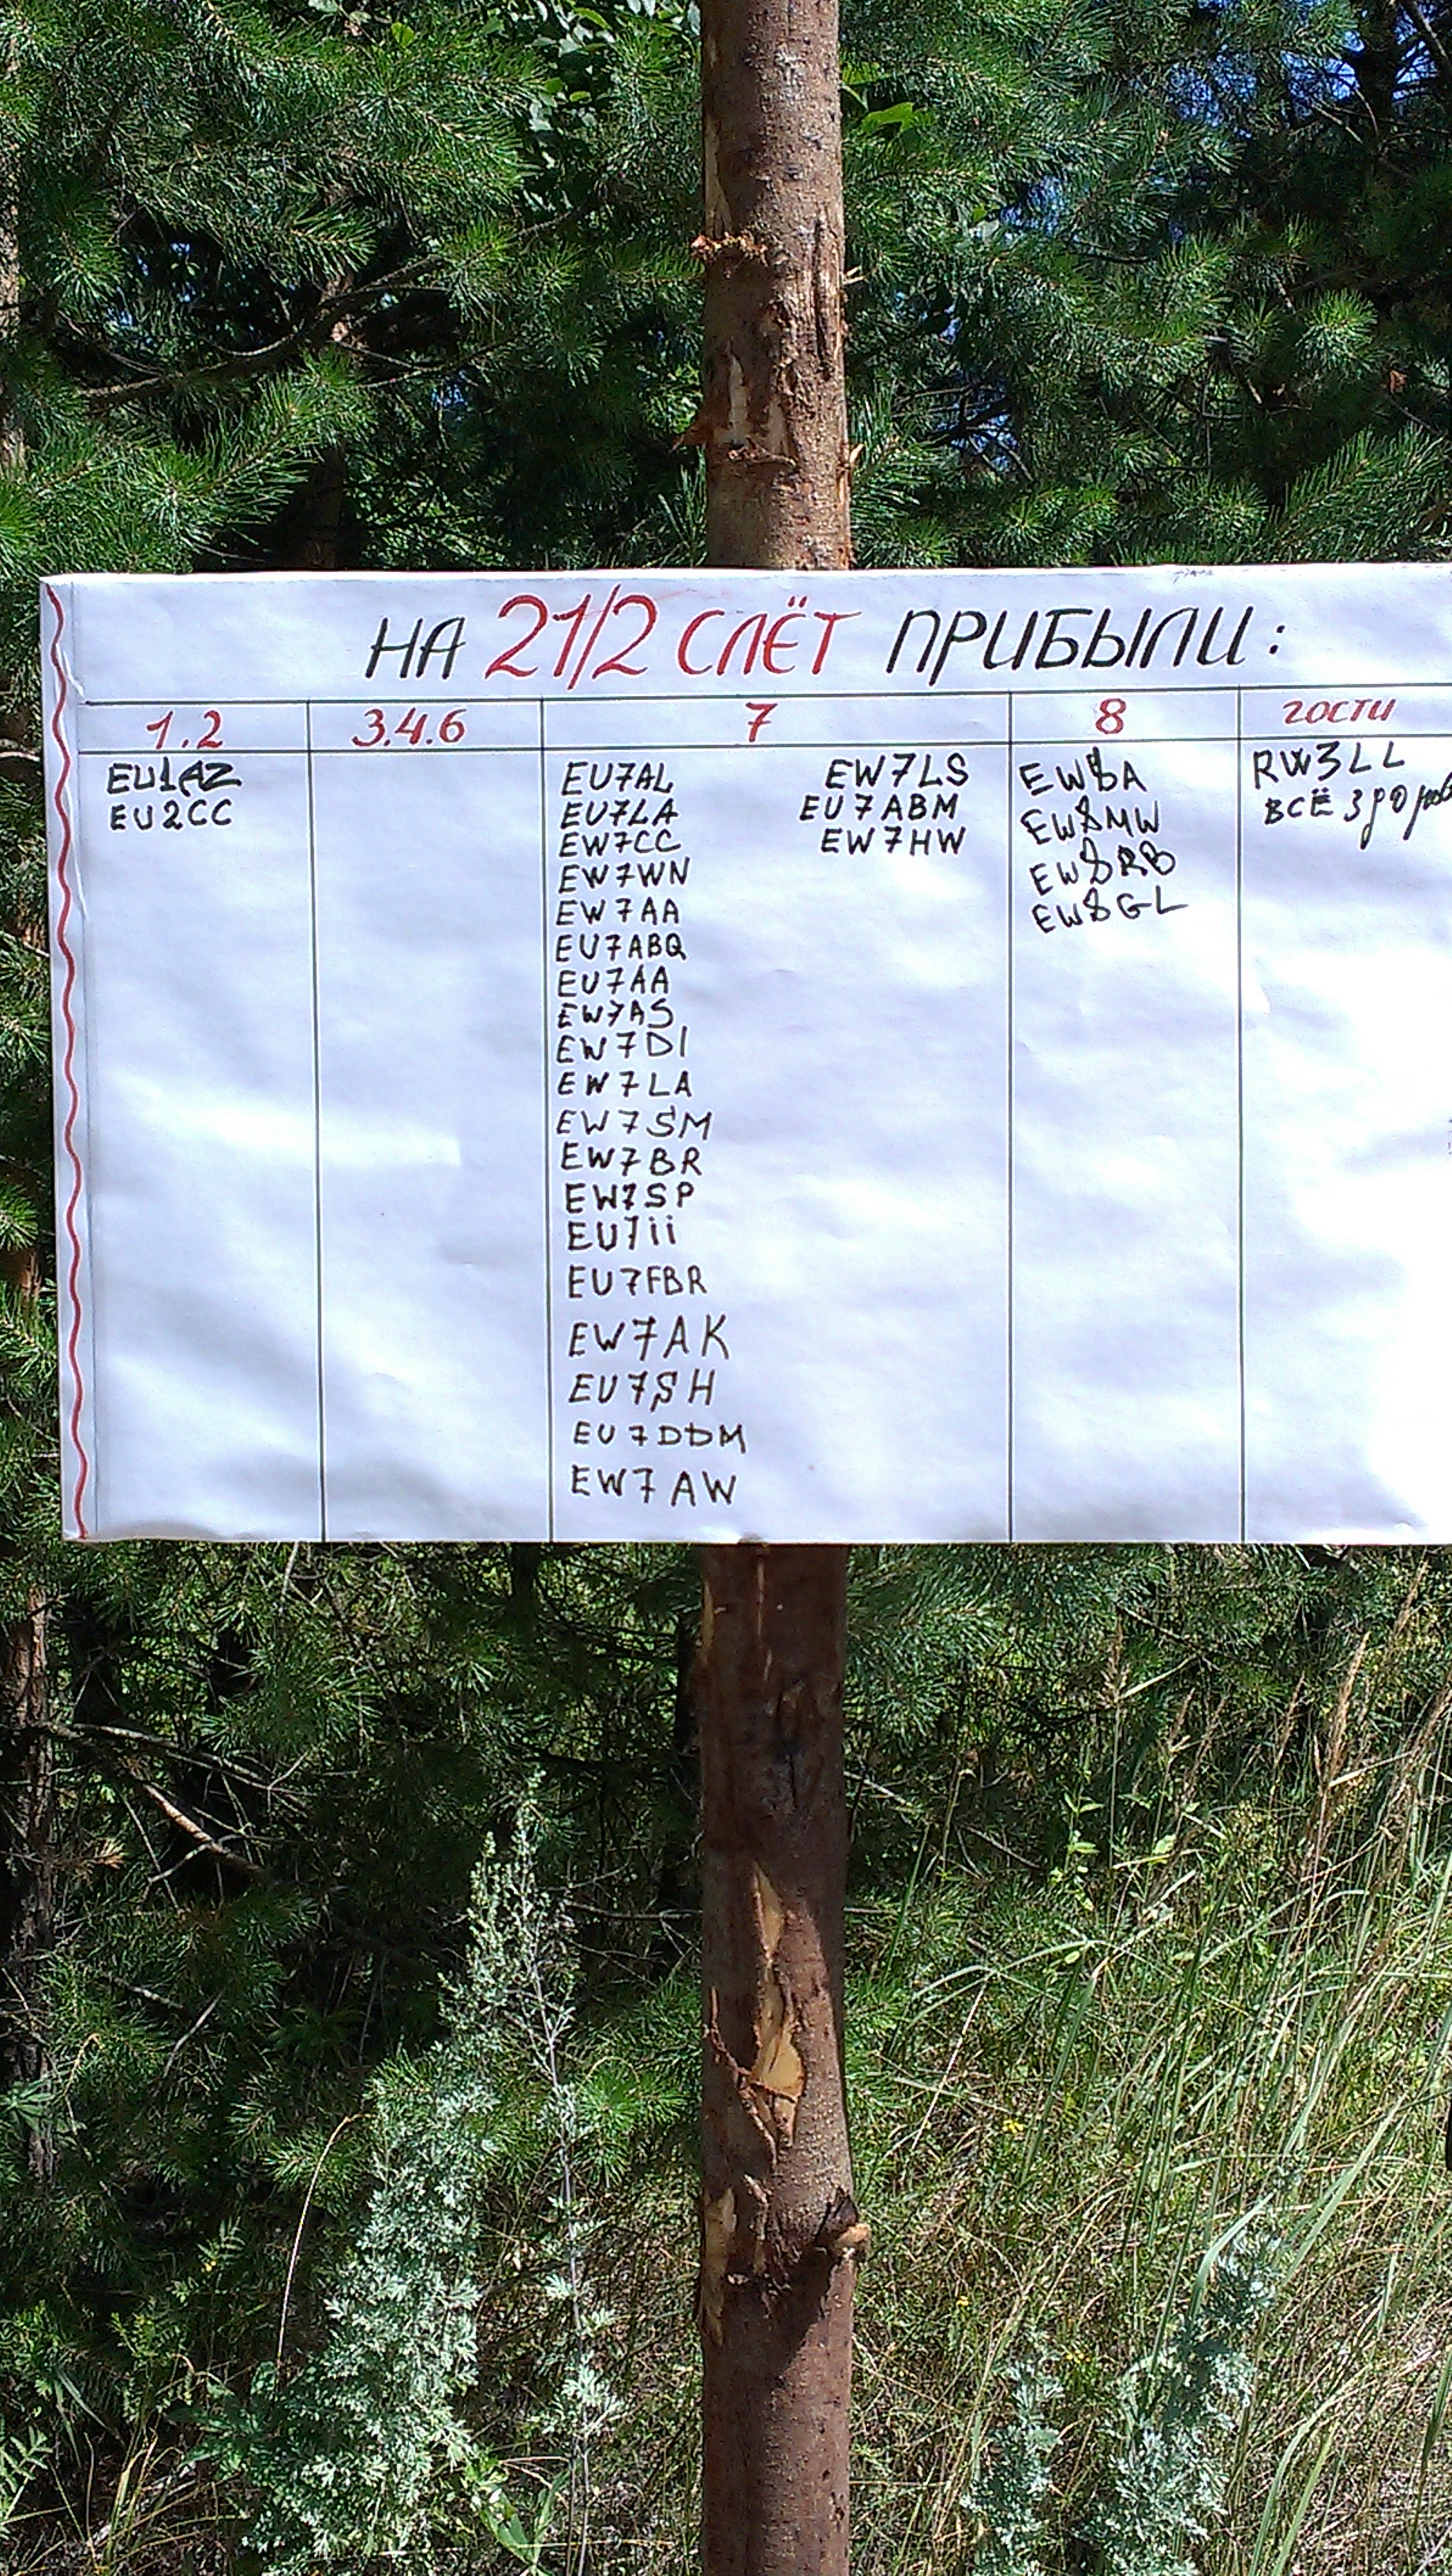 НА 21/2 СЛЁТ ПРИБЫЛИ:
1.2
3.4.6
7
8
гости
EU1AZ
EU2CC
EU7AL
EU7LA
EW7CC
EW7WN
EW7AA
EU7ABQ
EU7AA
EW7AS
EW7DI
EW7LA
EW7SM
EW7BR
EW7SP
EU7ii
EU7FBR
EW7AK
EU7SH
EU7DDM
EW7AW
EW7LS
EU7ABM
EW7HW
EW8A
EW8MW
EW8RB
EW8GL
RW3LL
ВСЁ